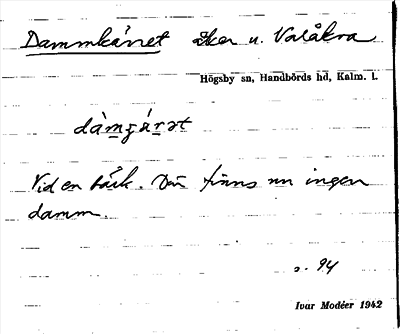 Dammkärret åker u. Valåkra
Högsby sn, Handbörds hd, Kalm. l.
dàmɟä́rət
Vid en bäck. Där finns nu ingen
damm.
s. 94
Ivar Modéer 1942